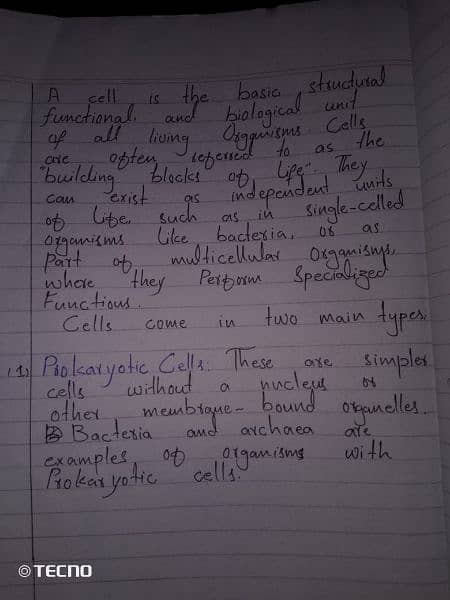 A cell is the basic structural
functional, and biological unit
of all living Organisms. Cells
are often referred to as the
"building blocks of life". They
can exist as independent units
of life, such as in single-celled
organisms like bacteria, or as
part of multicellular Organisms,
where they Perform Specialized
Functions.
Cells come in two main types.
(1) Prokaryotic Cells: These are simpler
cells without a nucleus or
other membrane-bound organelles.
Bacteria and archaea are
examples of organisms with
Prokaryotic cells.
TECNO